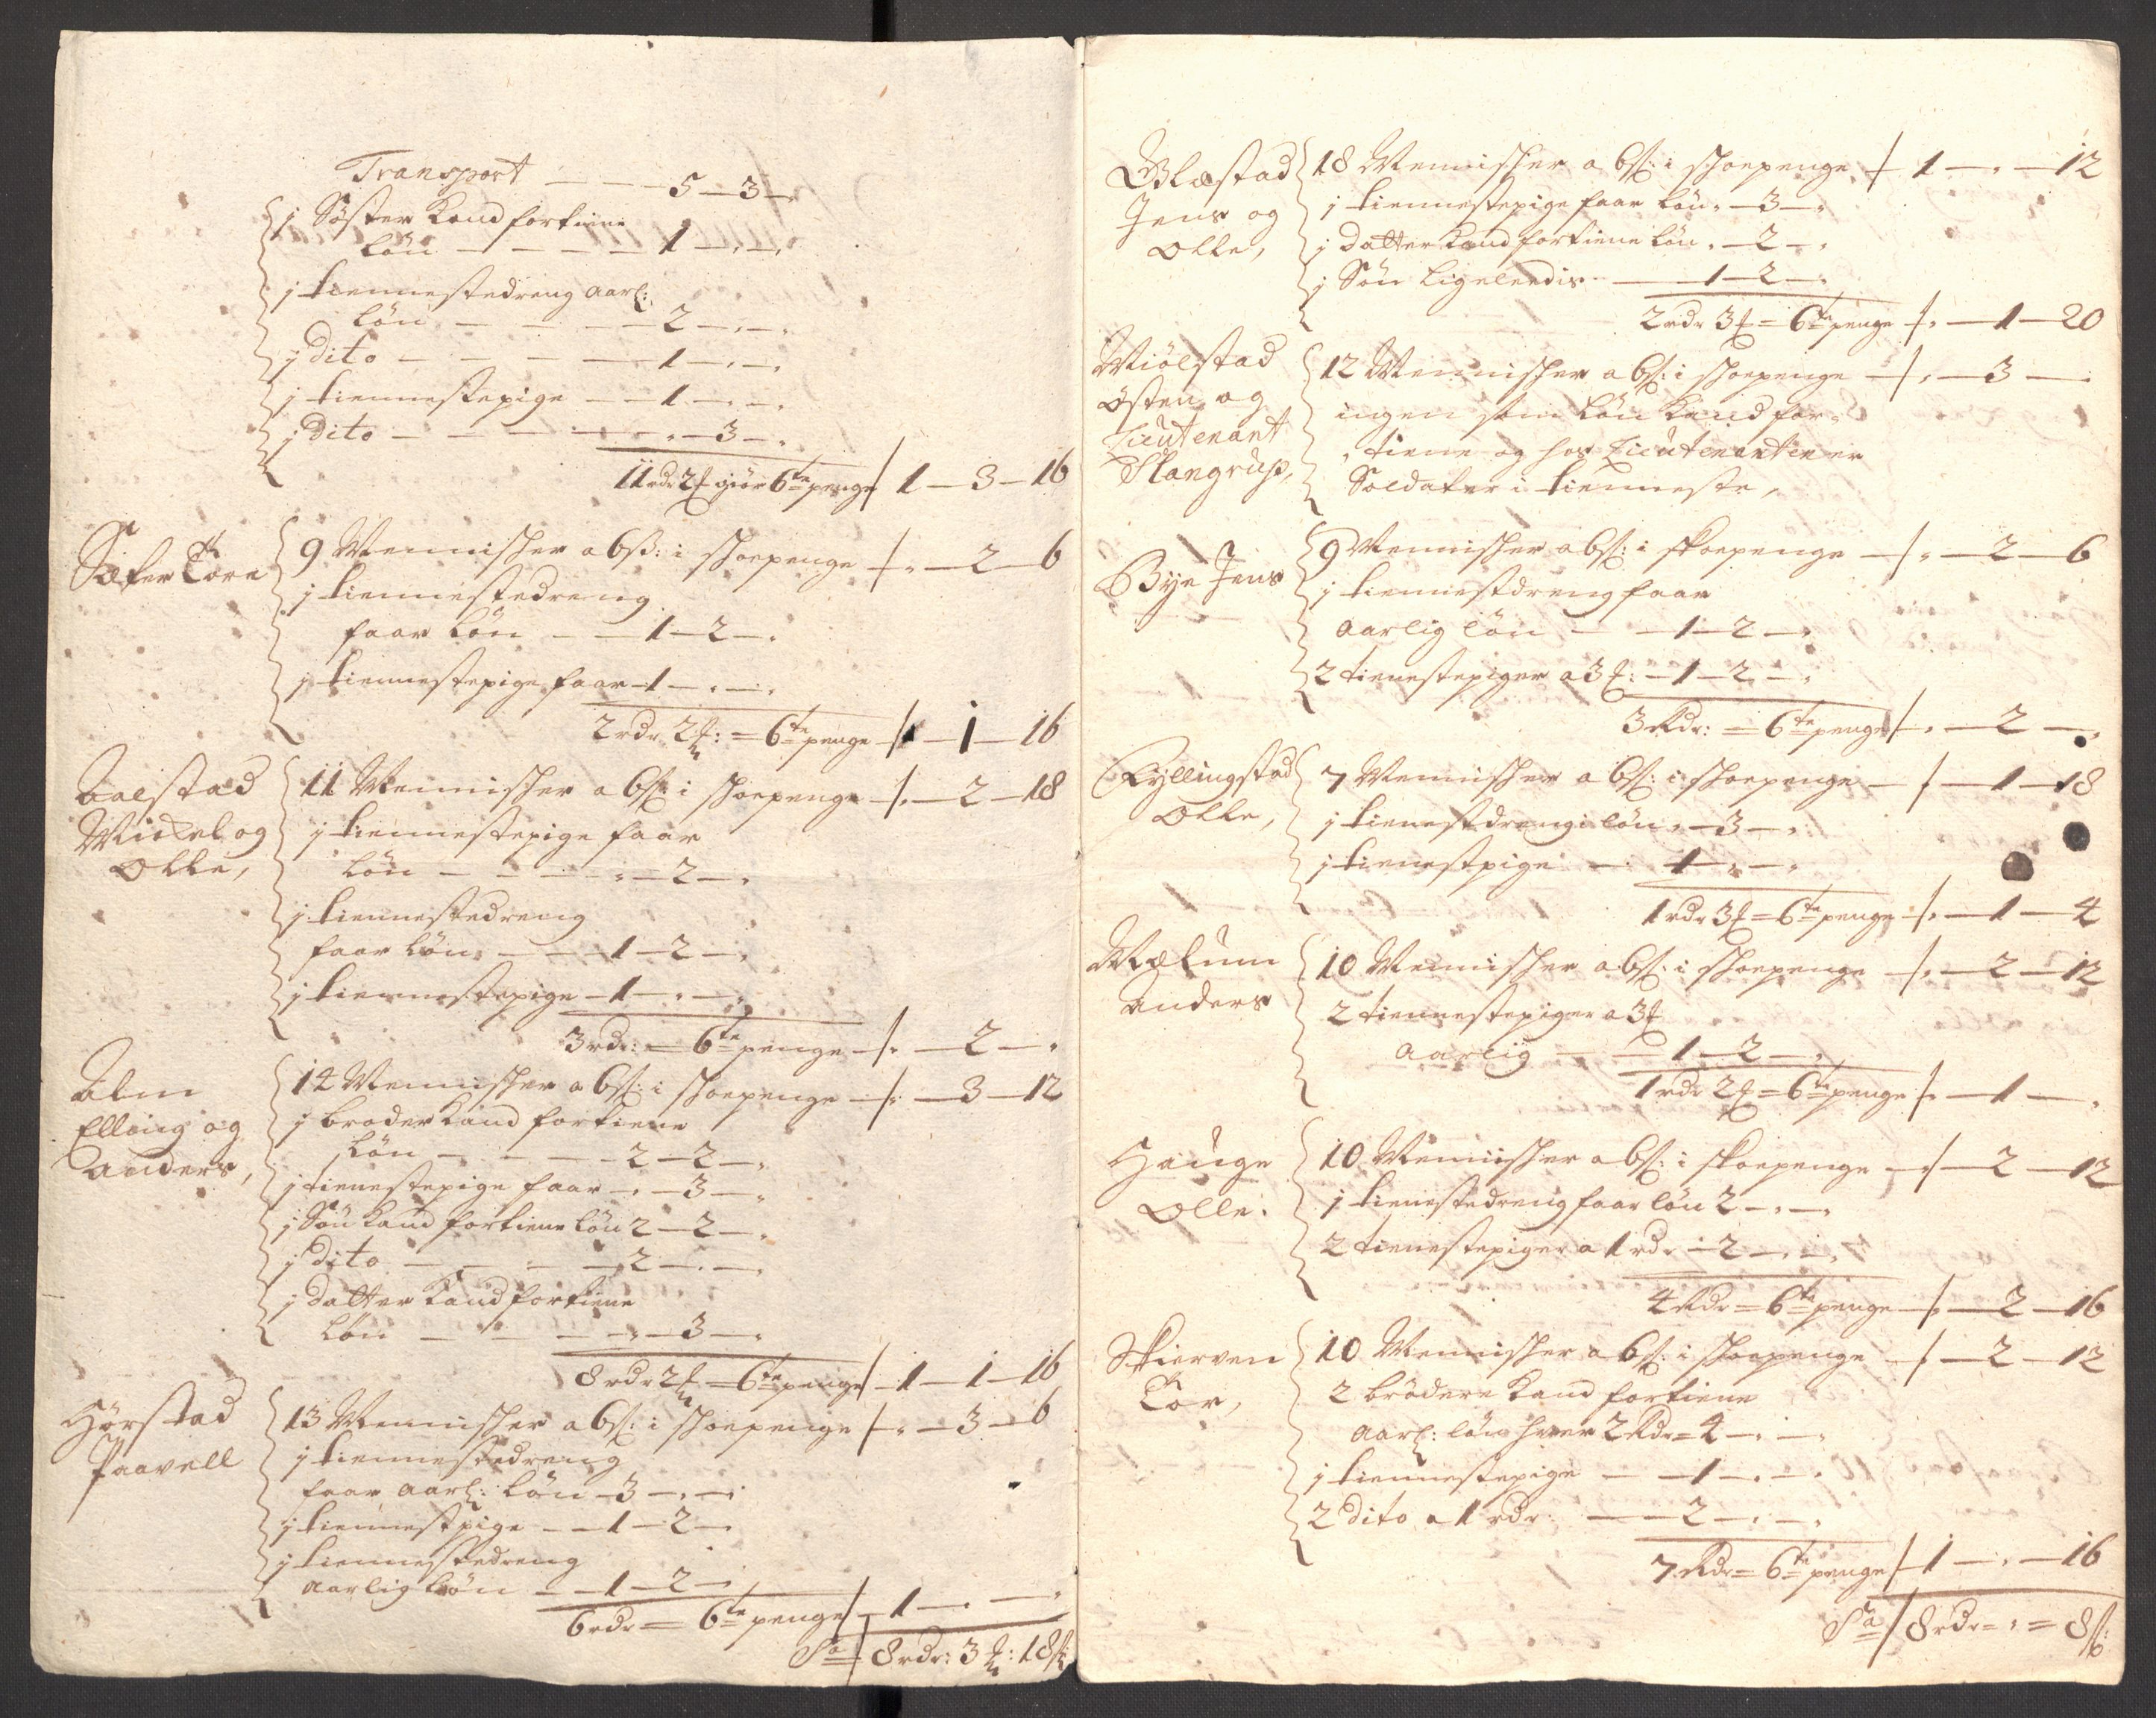 Transport — — — 5 — 3 — „
j Søster kand fortiene
løn — — — — 1 — „ — „
j tiennestedreng aarl:
løn — — — — 2 — „ — „
j dito — — — — 1 — „ — „
j tiennestepige — — 1 — „ — „
j dito — — — — „ — 3 — „
11 rdr 2 ₰ giør 6te penge 1 — 3 — 16
Sæter Tore
9 Mennisher a 6 ß: i shoepenge „ — 2 — 6
j tiennestedreng
faar løn — — 1 — 2 — „
j tiennestepige faar 1 — „ — „
2 rdr 2 ₰: = 6te penge „ — 1 — 16
Aalstad
Mickel og
Olle,
11 Mennisher a 6 ß: i shoepenge „ — 2 — 18
j tiennestepige faar
løn — — — „ — 2 — „
j tiennestedreng
faar løn — — 1 — 2 — „
j tiennestepige — 1 — „ — „
3 rdr: = 6te penge „ — 2 — „
Alm
Elling og
Anders,
14 Mennisher a 6 ß: i shoepenge „ — 3 — 12
j broder kand fortiene
løn — — — 2 — 2 — „
j tienestepige faar „ — 3 — „
j Søn kand fortiene løn 2 — 2 — „
j dito — — — 2 — „ — „
j datter kand fortiene
løn — — — „ — 3 — „
8 rdr 2 ₰ = 6te penge 1 — 1 — 16
Hørstad
Paavell
13 Mennisher a 6 ß: i shoepenge „ — 3 — 6
j tiennestedreng
faar aarl: løn 3 — „ — „
j tiennestpige — — 1 — 2 — „
j tiennestedreng
aarlig løn — — 1 — 2 — „
6 rdr = 6te penge 1 — „ — „
Sa 8 rdr: 3 ₰: 18 ß
Blæstad
Jens og
Olle,
18 Mennisher a 6 ß: i shoepenge 1 — „ — 12
j tiennestepige faar løn „ — 3 — „
j datter kand fortiene løn „ — 2 — „
j Søn ligeleedis — 1 — 2 — „
2 rdr 3 ₰ = 6te penge „ — 1 — 20
Miølstad
Østen og
Lieutenant
Slangrup,
12 Mennisher a 6 ß: i shoepenge „ — 3 — „
ingen som løn kand for-
„tiene og hos Lieutenanten er
Soldater i tienneste,
Bye Jens
9 Mennisher a 6 ß: i skoepenge „ — 2 — 6
j tiennestdreng faar
aarlig løn — — 1 — 2 — „
2 tienestepiger a 3 ₰: — 1 — 2 — „
3 Rdr: = 6te penge „ — 2 — „
Kyllingstad
Olle,
7 Mennisher a 6 ß: i shoepenge — 1 — 18
j tienestdreng i løn „ — 3 — „
j tienestpige — 1 — „ — „
1 rdr 3 ₰ = 6te penge „ — 1 — 4
Mælum
Anders
10 Mennisher a 6 ß: i shoepenge „ — 2 — 12
2 tiennestepiger a 3 ₰
aarlig — — 1 — 2 — „
1 rdr 2 ₰ = 6te penge „ — 1 — „
Hauge
Olle:
10 Mennisher a 6 ß: i skoepenge „ — 2 — 12
j tienestedreng faar løn 2 — „ — „
2 tienestepiger a 1 rdr — 2 — „ — „
4 Rdr = 6te penge „ — 2 — 16
Skierven
Tor,
10 Mennisher a 6 ß: i shoepenge „ — 2 — 12
2 brødere kand fortiene
aarl: løn hver 2 Rdr = 4 — „ — „
j tiennestepige — — 1 — „ — „
2 dito a 1 rdr: — — 2 — „ — „
7 Rdr = 6te penge 1 — „ — 16
Sa 8 rdr = „ = 8 ß: